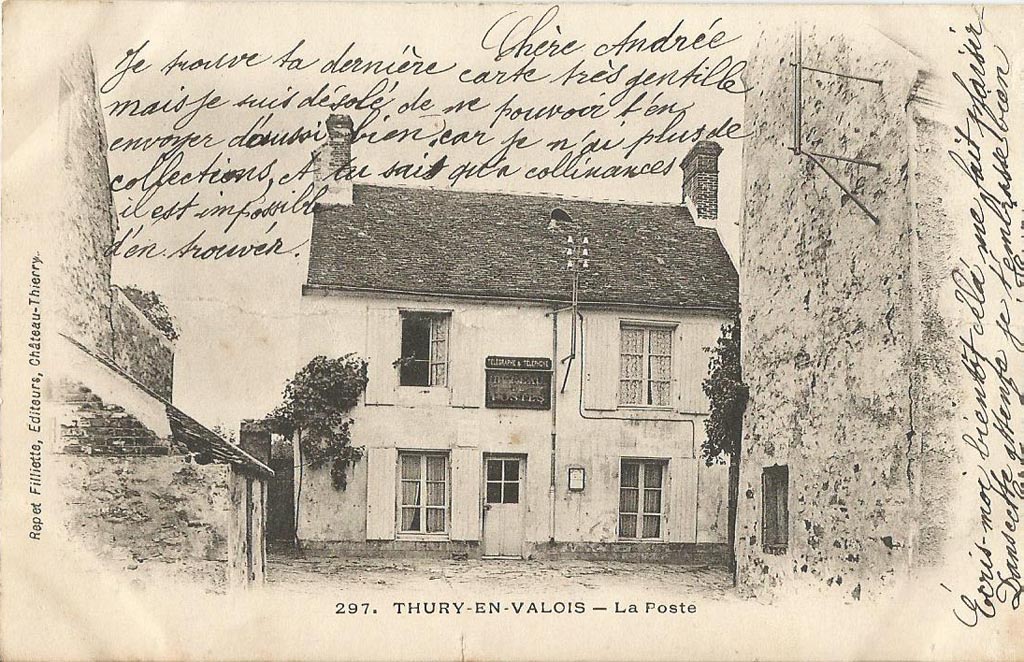 Chère Andrée
Je trouve ta dernière carte très gentille
mais je suis désolé de ne pouvoir t'en
envoyer d'aussi bien, car je n'ai plus de
collections, et tu sais qu'a collinances
il est impossible
d'en trouver.
Écris-moi bientôt cela me fait plaisir
Dans cette attente je t'embrasse bien
TÉLÉGRAPHE & TÉLÉPHONE
BUREAU
POSTES
Rep et Filliette, Editeurs, Château-Thierry.
297. THURY-EN-VALOIS — La Poste